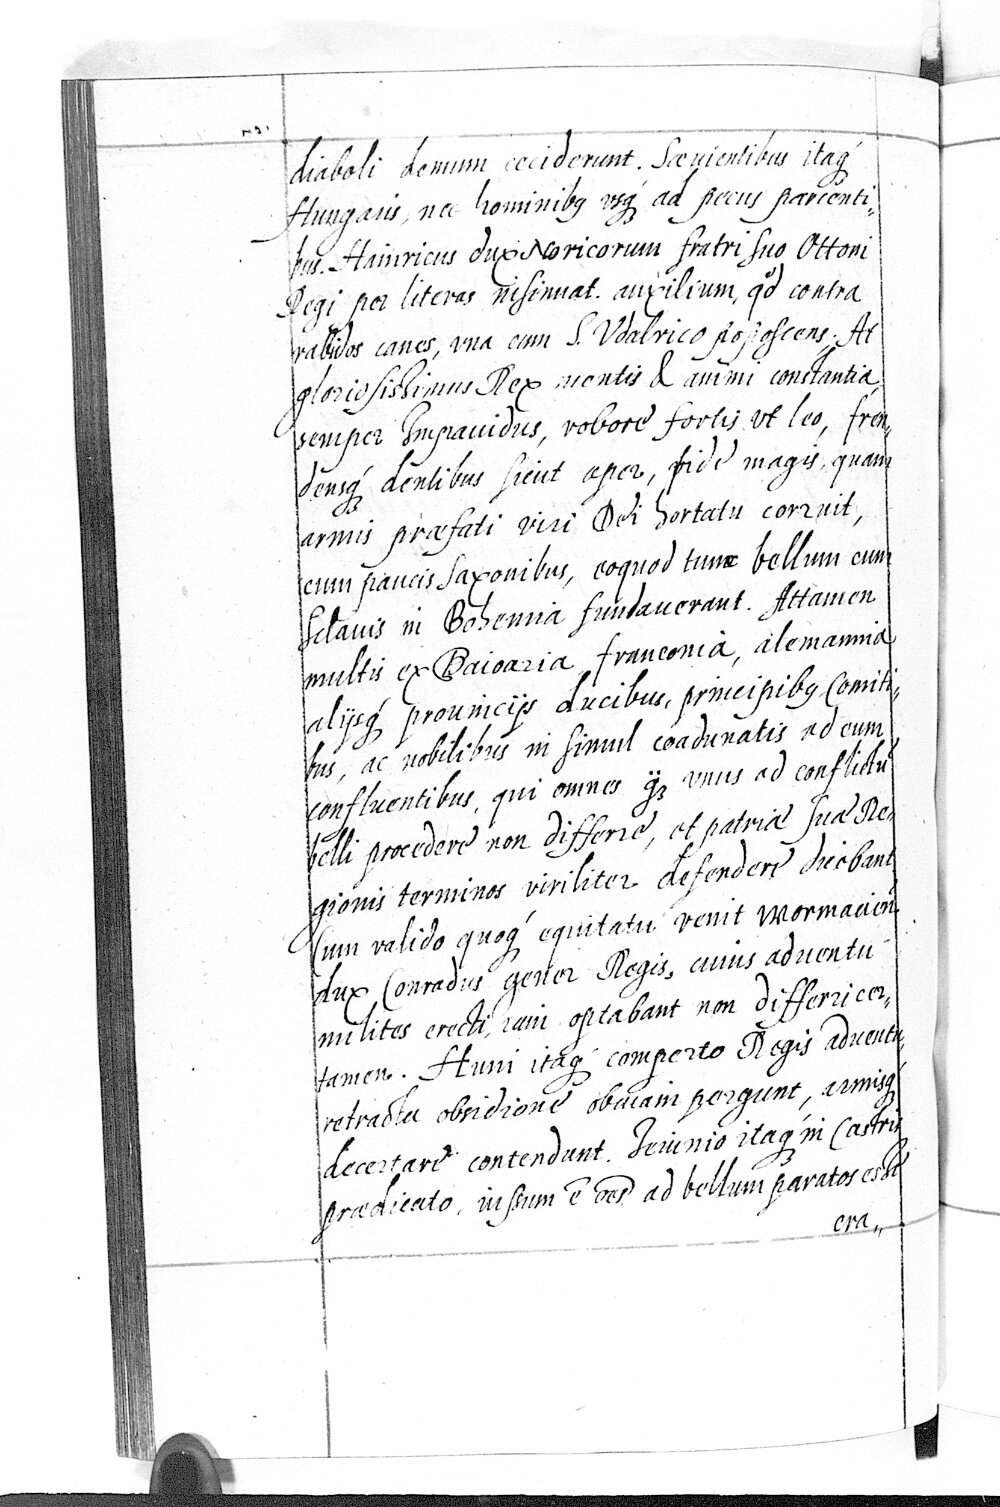 diaboli demum ceciderunt. Sæuientibus itaq́
Hungaris, nec hominibꝰ vsq́ ad pecus parcenti„
bus. Hainricus dux Noricorum fratri suo Ottoni
Regi per literas insinuat. auxilium, qd contra
rabidos canes, vna cum S. Vdalrico poposcens. At
gloriosissimus Rex mentis & animi constantia
semper Impauidus, robore fortis vt leo, fren„
densq́ dentibus sicut aper, fide magis, quam
armis præfati viri Dei hortatu corruit,
cum paucis saxonibus, eoquod tunc bellum cum
Sclauis in Bohemia fundauerant. Attamen
multis ex Baioaria franconia, alemannia
alijsq́ prouincijs ducibus, principibꝰ Comiti„
bus, ac nobilibus in simul coadunatis ad eum
confluentibus, qui omnes qz vnus ad conflictū
belli procedere non differre, et patriæ suæ Re„
gionis terminos viriliter defendere dicebant
Cum valido quoq́ equitatu venit wormacien̄
dux Conradus gener Regis, cuius aduentu
milites erecti, iam optabant non differri cer„
tamen. Huni itaq́ comperto Regis aduentu,
retracta obsidione obuiam pergunt, armisq́
decertare contendunt. Ieiunio itaq́ in Castris
prædicato, iussum ē oēs ad bellum paratos esse
era„